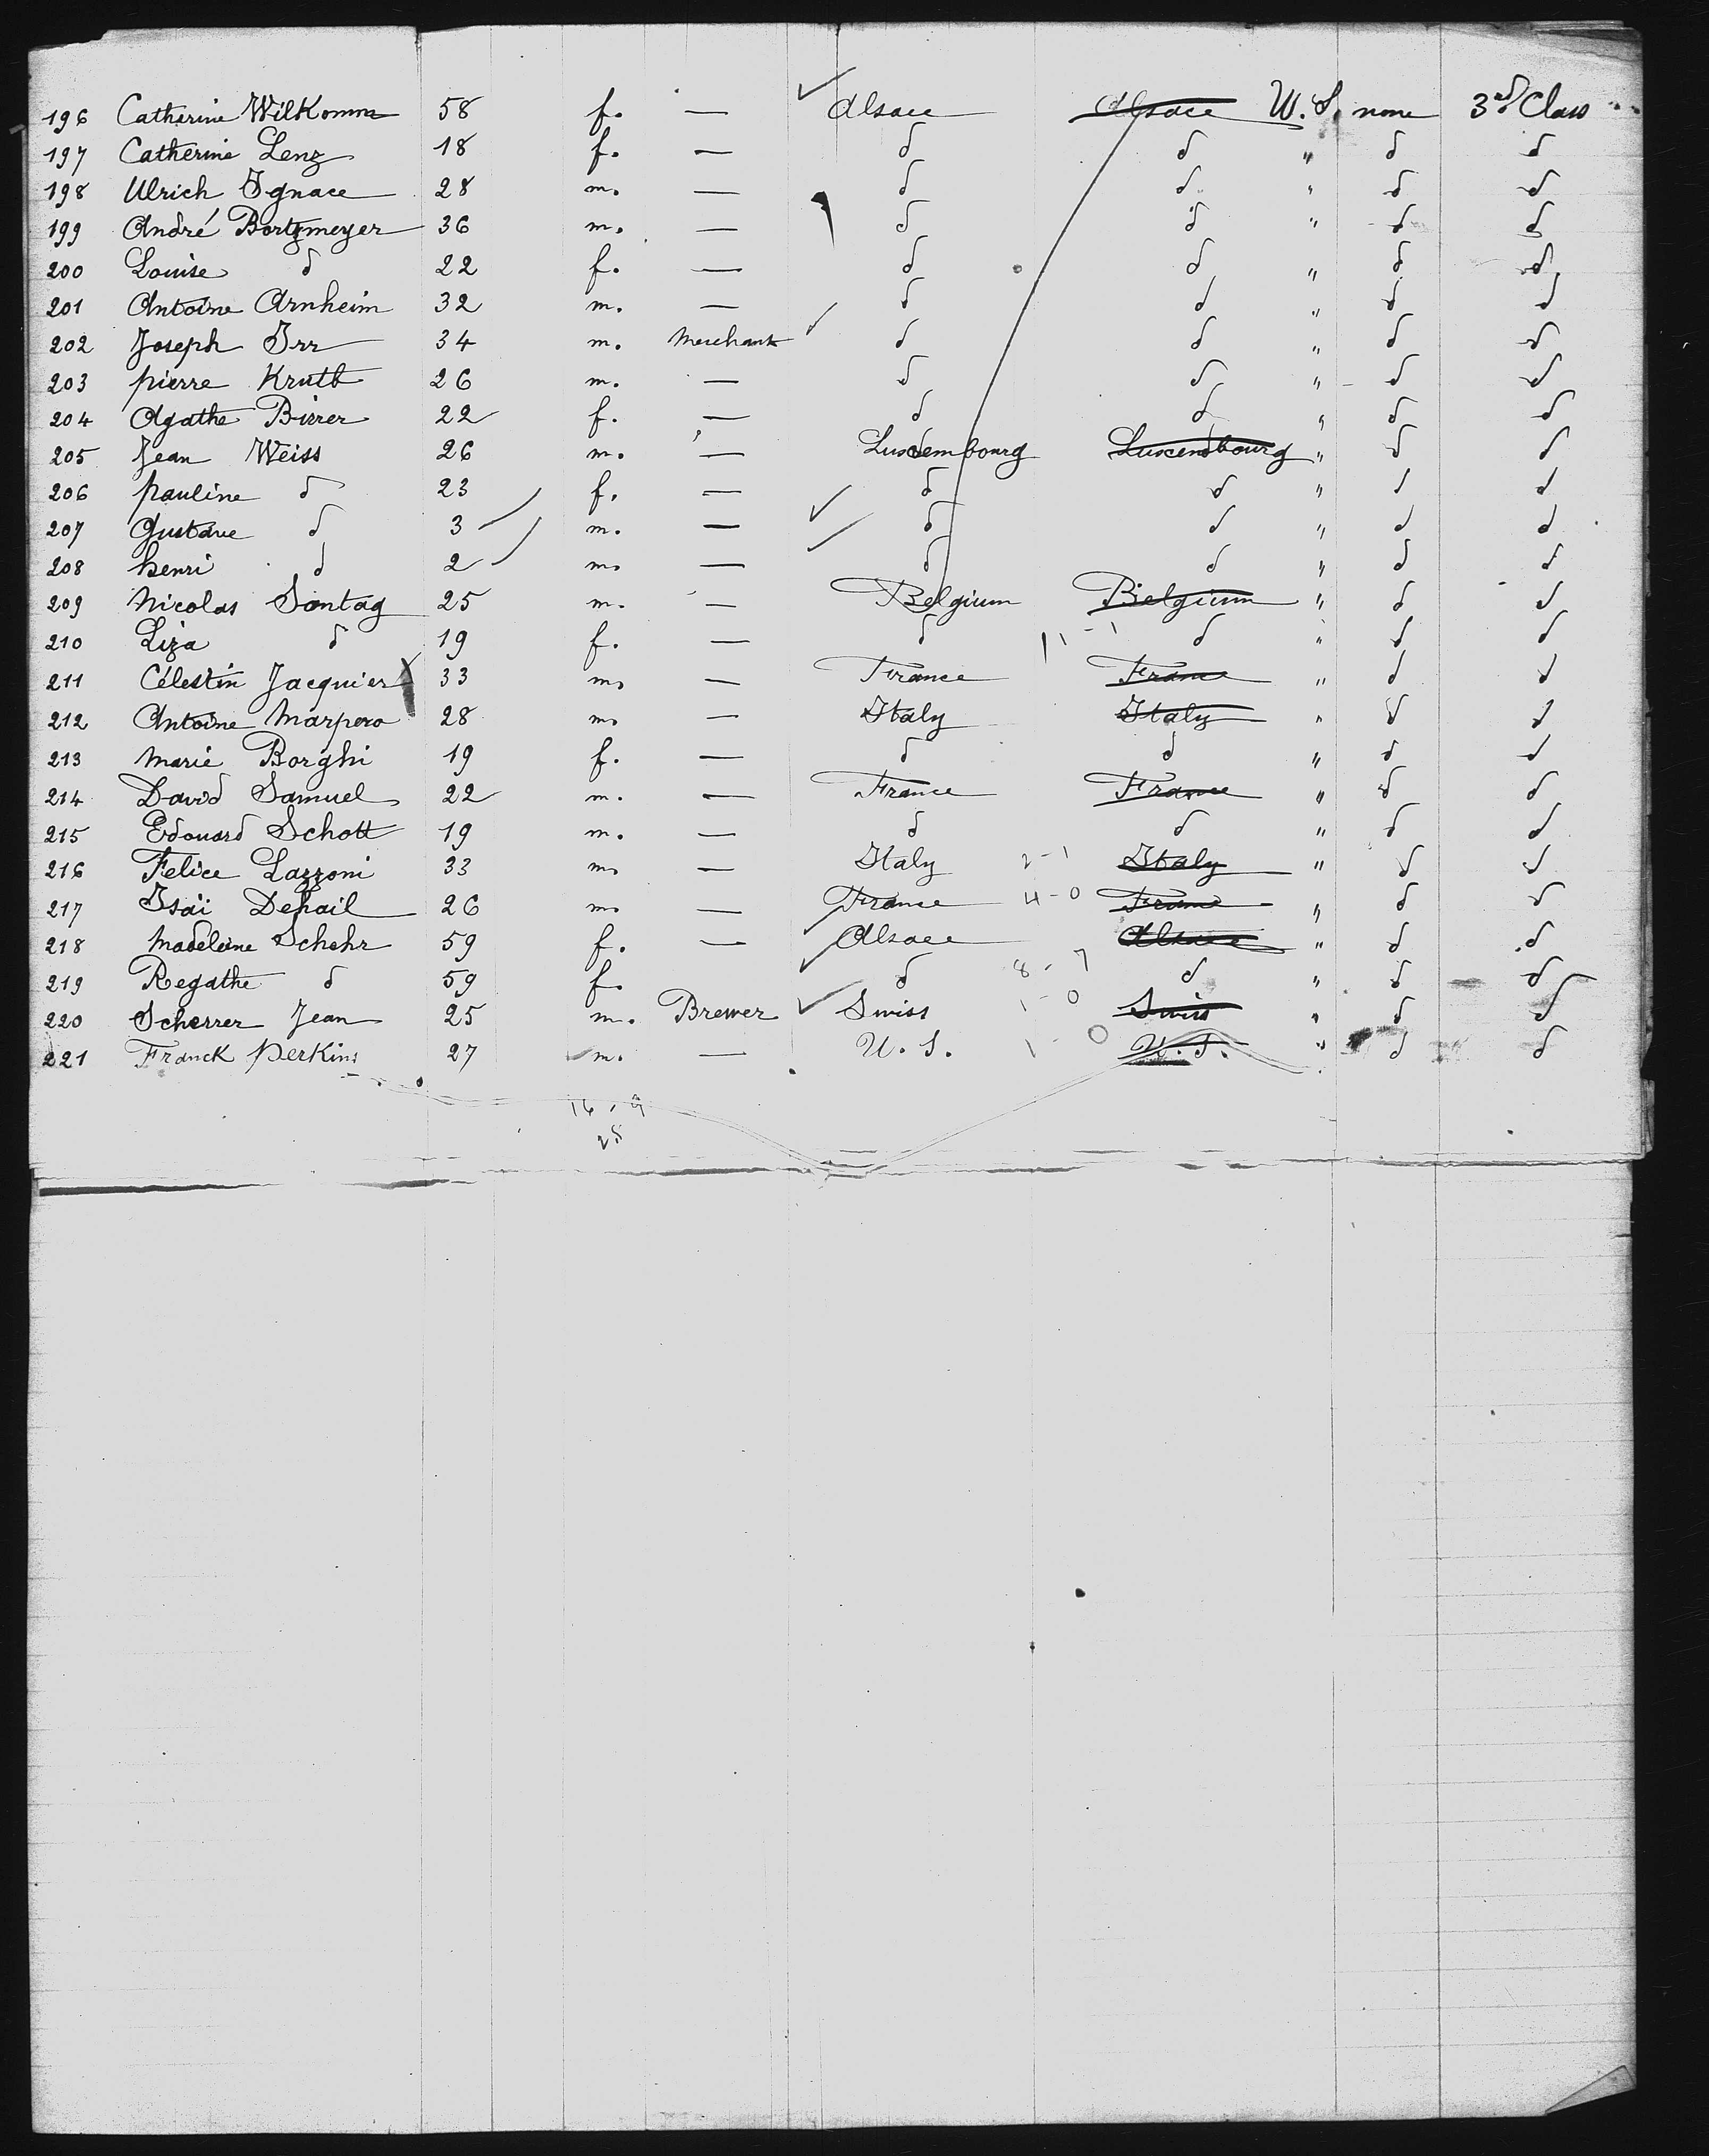 196 Catherine Wilkomm 58 f. — Alsace Alsace U.S. none 3rd Class
197 Catherine Lenz 18 f. — d d " d d
198 Ulrich Ignace 28 m. — d d " d d
199 André Bortzmeyer 36 m. — d d " d d
200 Louise d 22 f. — d d " d d
201 Antoine Arnheim 32 m. — d d " d d
202 Joseph Irr 34 m. Merchant d d " d d
203 pierre Kruth 26 m. — d d " d d
204 Agathe Birrer 22 f. — d d " d d
205 Jean Weiss 26 m. — Luxembourg Luxembourg " d d
206 pauline d 23 f. — d d " d d
207 Gustave d 3 m. — d d " d d
208 henri d 2 m. — d d " d d
209 Nicolas Sontag 25 m. — Belgium Belgium " d d
210 Liza d 19 f. — d 11-1 d " d d
211 Célestin Jacquier 33 m. — France France " d d
212 Antoine Marpero 28 m. — Italy Italy " d d
213 Marie Borghi 19 f. — d d " d d
214 David Samuel 22 m. — France France " d d
215 Edouard Schott 19 m. — d d " d d
216 Felice Lazzoni 33 m. — Italy 2-1 Italy " d d
217 Isaï Dehail 26 m. — France 4-0 France " d d
218 Madeleine Schehr 59 f. — Alsace Alsace " d d
219 Regathe d 59 f. d 8-7 d " d d
220 Scherrer Jean 25 m. Brewer Swiss 1-0 Swiss " d d
221 Franck Perkins 27 m. — U.S. 1-0 U.S. " d d
16,9
25